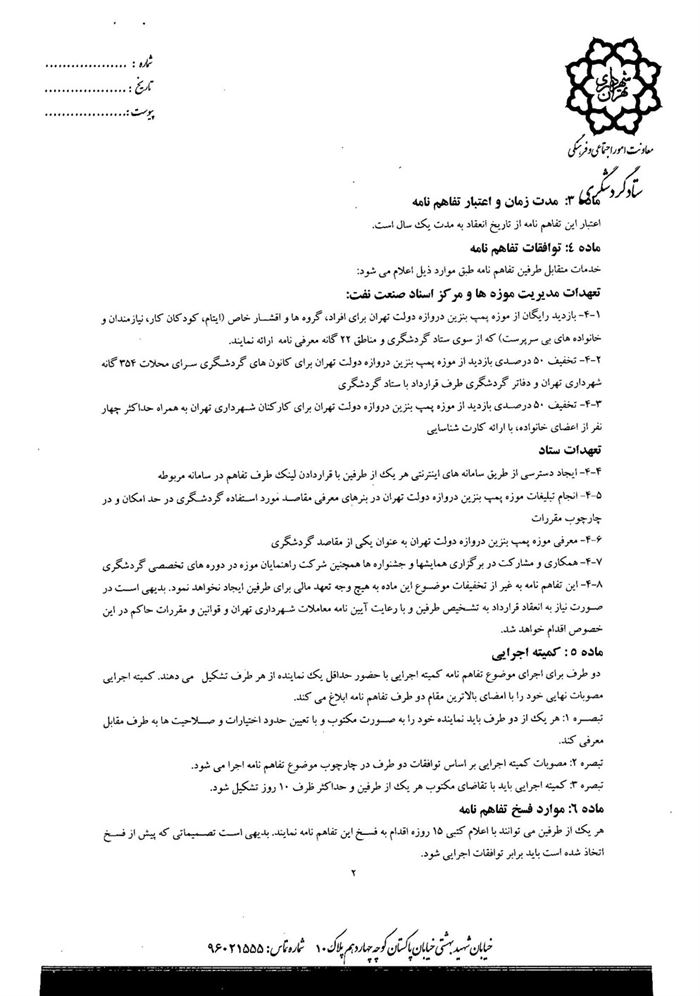 شماره : ...................
تاریخ : ...................
پیوست : ...................
شهرداری تهران
معاونت امور اجتماعی و فرهنگی
ستاد گردشگری
ماده ۳: مدت زمان و اعتبار تفاهم نامه
اعتبار این تفاهم نامه از تاریخ انعقاد به مدت یک سال است.
ماده ۴: توافقات تفاهم نامه
خدمات متقابل طرفین تفاهم نامه طبق موارد ذیل اعلام می شود:
تعهدات مدیریت موزه ها و مرکز اسناد صنعت نفت:
۴-۱- بازدید رایگان از موزه پمپ بنزین دروازه دولت تهران برای افراد، گروه ها و اقشار خاص (ایتام، کودکان کار، نیازمندان و
خانواده های بی سرپرست) که از سوی ستاد گردشگری و مناطق ۲۲ گانه معرفی نامه ارائه نمایند.
۴-۲- تخفیف ۵۰ درصدی بازدید از موزه پمپ بنزین دروازه دولت تهران برای کانون های گردشگری سرای محلات ۳۵۴ گانه
شهرداری تهران و دفاتر گردشگری طرف قرارداد با ستاد گردشگری
۴-۳- تخفیف ۵۰ درصدی بازدید از موزه پمپ بنزین دروازه دولت تهران برای کارکنان شهرداری تهران به همراه حداکثر چهار
نفر از اعضای خانواده، با ارائه کارت شناسایی
تعهدات ستاد
۴-۴- ایجاد دسترسی از طریق سامانه های اینترنتی هر یک از طرفین با قراردادن لینک طرف تفاهم در سامانه مربوطه
۴-۵- انجام تبلیغات موزه پمپ بنزین دروازه دولت تهران در بنرهای معرفی مقاصد مورد استفاده گردشگری در حد امکان و در
چارچوب مقررات
۴-۶- معرفی موزه پمپ بنزین دروازه دولت تهران به عنوان یکی از مقاصد گردشگری
۴-۷- همکاری و مشارکت در برگزاری همایشها و جشنواره ها همچنین شرکت راهنمایان موزه در دوره های تخصصی گردشگری
۴-۸- این تفاهم نامه به غیر از تخفیفات موضوع این ماده به هیچ وجه تعهد مالی برای طرفین ایجاد نخواهد نمود. بدیهی است در
صورت نیاز به انعقاد قرارداد به تشخیص طرفین و با رعایت آیین نامه معاملات شهرداری تهران و قوانین و مقررات حاکم در این
خصوص اقدام خواهد شد.
ماده ۵: کمیته اجرایی
دو طرف برای اجرای موضوع تفاهم نامه کمیته اجرایی با حضور حداقل یک نماینده از هر طرف تشکیل می دهند. کمیته اجرایی
مصوبات نهایی خود را با امضای بالاترین مقام دو طرف تفاهم نامه ابلاغ می کند.
تبصره ۱: هر یک از دو طرف باید نماینده خود را به صورت مکتوب و با تعیین حدود اختیارات و صلاحیت ها به طرف مقابل
معرفی کند.
تبصره ۲: مصوبات کمیته اجرایی بر اساس توافقات دو طرف در چارچوب موضوع تفاهم نامه اجرا می شود.
تبصره ۳: کمیته اجرایی باید با تقاضای مکتوب هر یک از طرفین و حداکثر ظرف ۱۰ روز تشکیل شود.
ماده ۶: موارد فسخ تفاهم نامه
هر یک از طرفین می توانند با اعلام کتبی ۱۵ روزه اقدام به فسخ این تفاهم نامه نمایند. بدیهی است تصمیماتی که پیش از فسخ
اتخاذ شده است باید برابر توافقات اجرایی شود.
۲
خیابان شهید بهشتی خیابان پاکستان کوچه چهاردهم پلاک ۱۰ شماره تماس: ۹۶۰۲۱۵۵۵